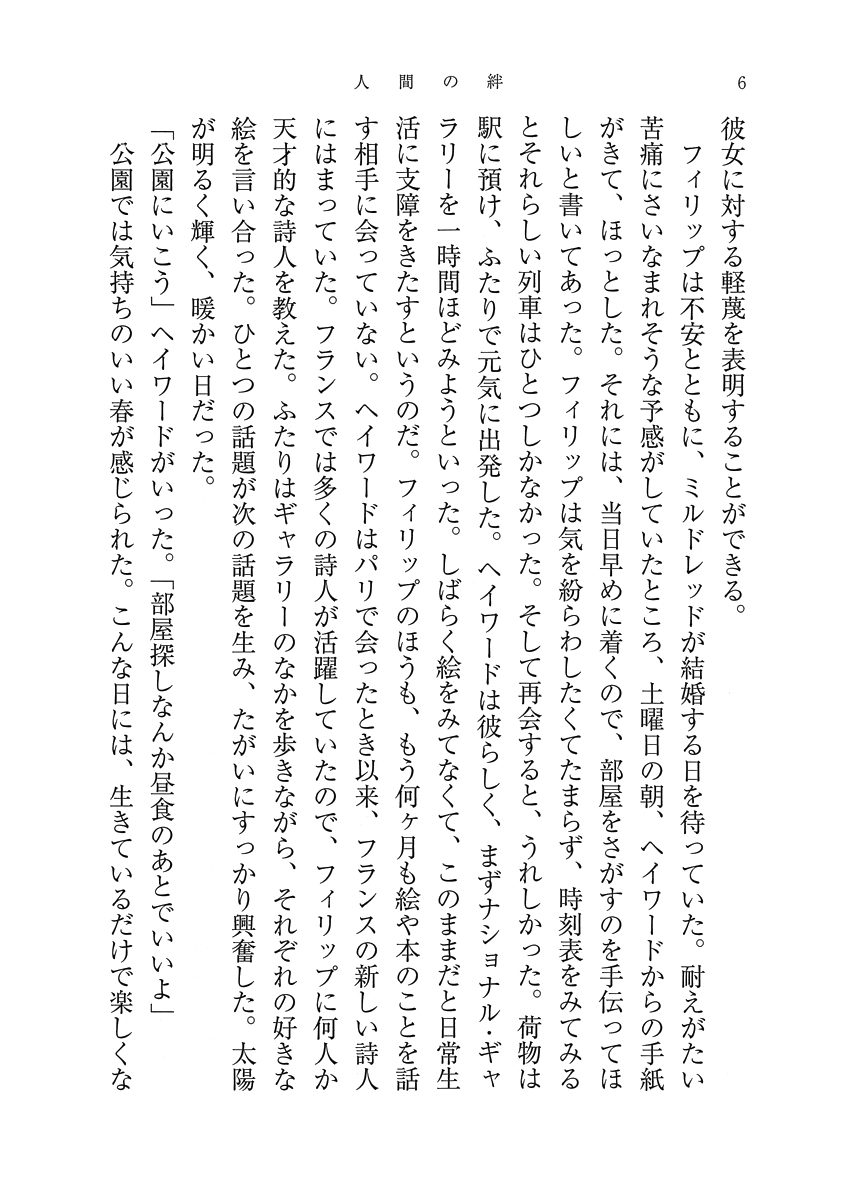 人間の絆
6
彼女に対する軽蔑を表明することができる。
フィリップは不安とともに、ミルドレッドが結婚する日を待っていた。耐えがたい
苦痛にさいなまれそうな予感がしていたところ、土曜日の朝、ヘイワードからの手紙
がきて、ほっとした。それには、当日早めに着くので、部屋をさがすのを手伝ってほ
しいと書いてあった。フィリップは気を紛らわしたくてたまらず、時刻表をみてみる
とそれらしい列車はひとつしかなかった。そして再会すると、うれしかった。荷物は
駅に預け、ふたりで元気に出発した。ヘイワードは彼らしく、まずナショナル・ギャ
ラリーを一時間ほどみようといった。しばらく絵をみてなくて、このままだと日常生
活に支障をきたすというのだ。フィリップのほうも、もう何ヶ月も絵や本のことを話
す相手に会っていない。ヘイワードはパリで会ったとき以来、フランスの新しい詩人
にはまっていた。フランスでは多くの詩人が活躍していたので、フィリップに何人か
天才的な詩人を教えた。ふたりはギャラリーのなかを歩きながら、それぞれの好きな
絵を言い合った。ひとつの話題が次の話題を生み、たがいにすっかり興奮した。太陽
が明るく輝く、暖かい日だった。
「公園にいこう」ヘイワードがいった。「部屋探しなんか昼食のあとでいいよ」
公園では気持ちのいい春が感じられた。こんな日には、生きているだけで楽しくな